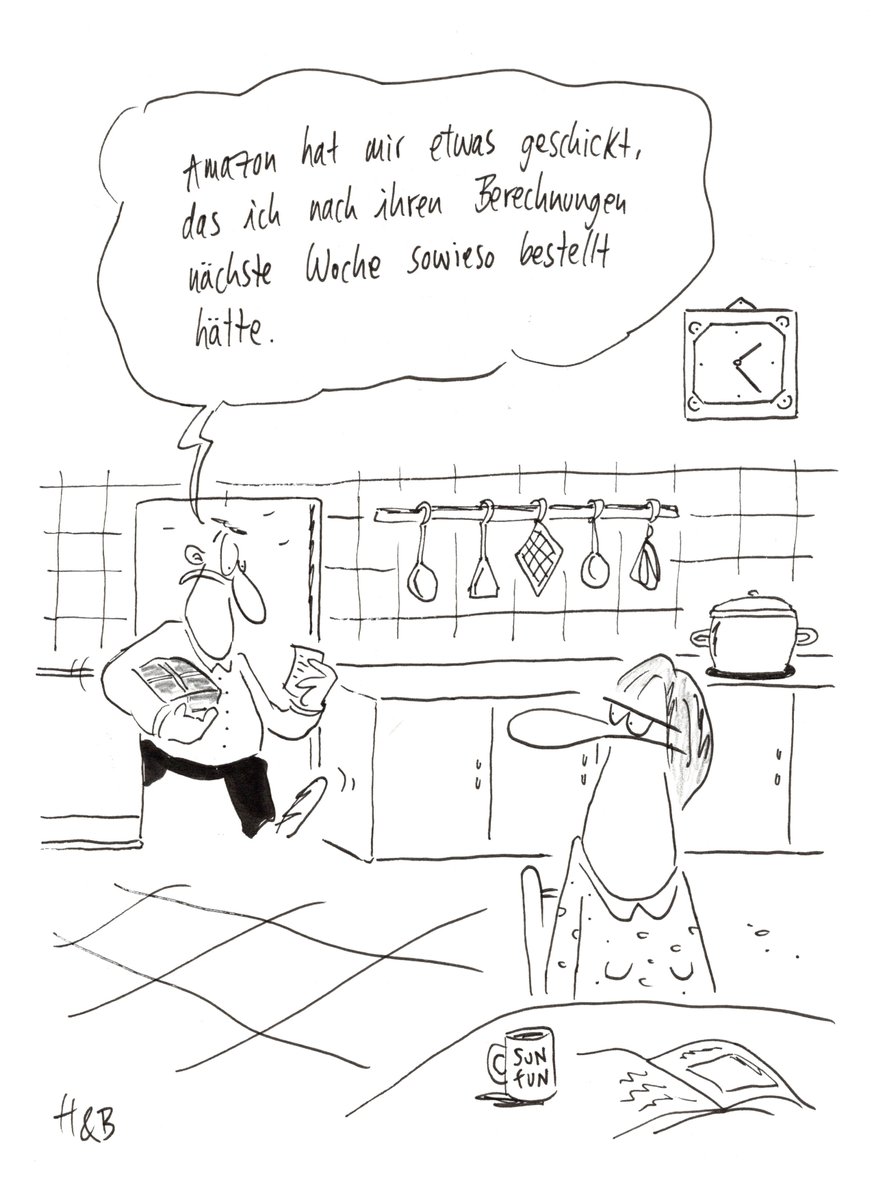 Amazon hat mir etwas geschickt,
das ich nach ihren Berechnungen
nächste Woche sowieso bestellt
hätte.
SUN
FUN
H&B